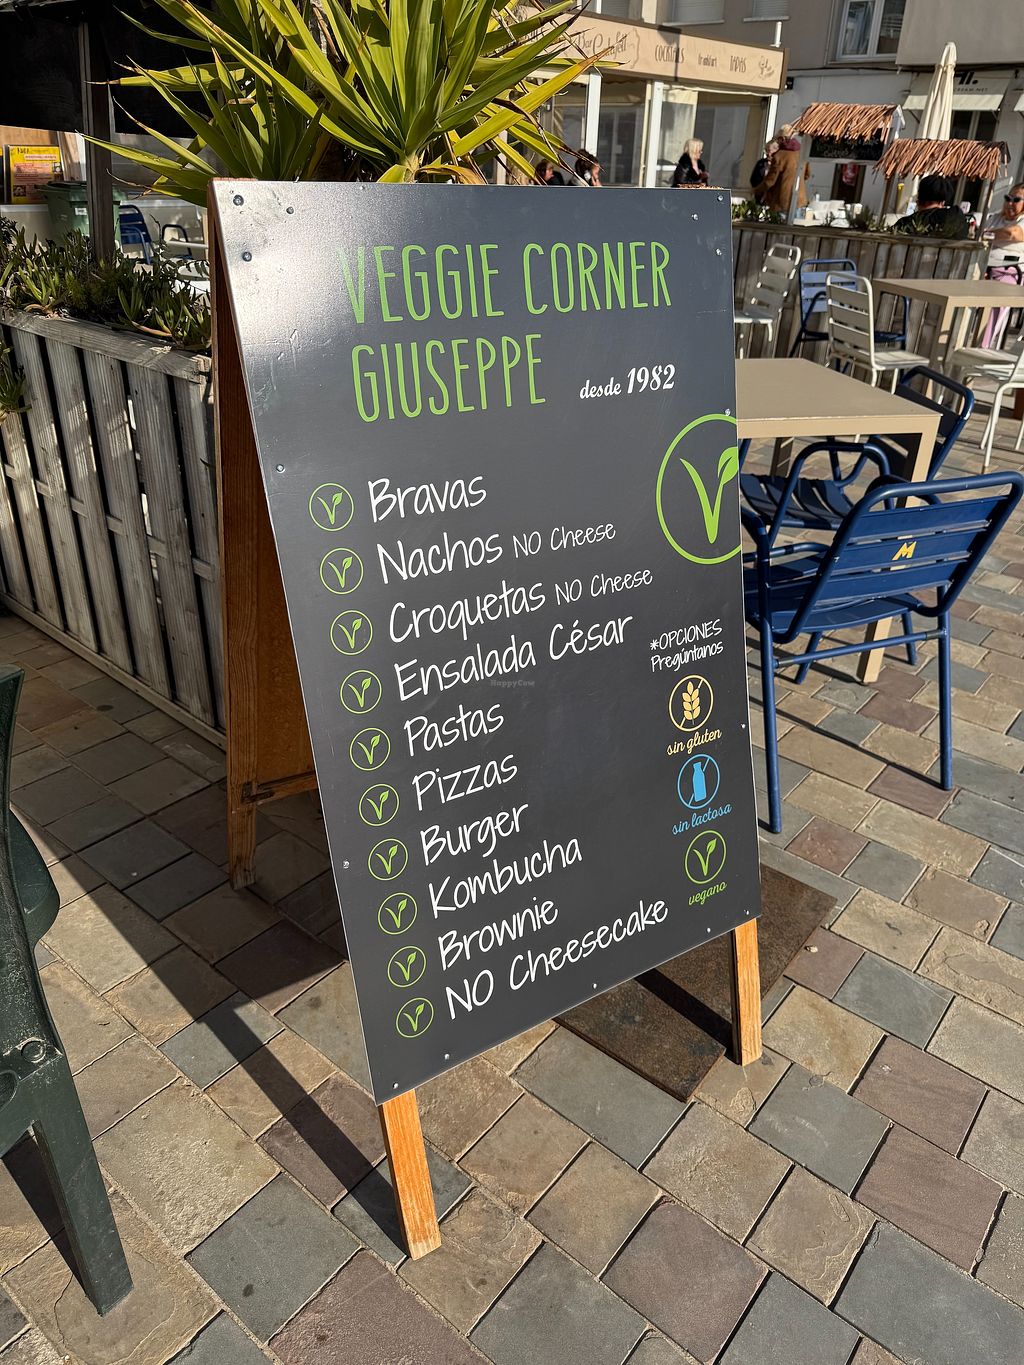 VEGGIE CORNER
GIUSEPPE desde 1982
Bravas
Nachos NO Cheese
Croquetas NO Cheese
Ensalada César
Pastas
Pizzas
Burger
Kombucha
Brownie
NO Cheesecake
*OPCIONES
Pregúntanos
sin gluten
sin lactosa
vegano
HappyCow
COCKTAILS
Frankfurt
TAPAS
M